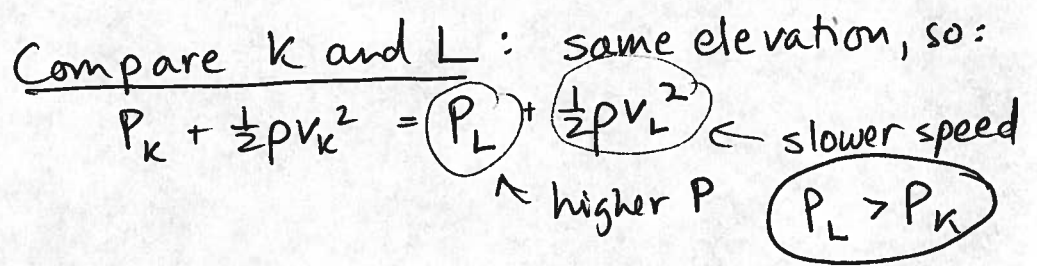 Compare K and L: same elevation, so:
P_K + ½ρv_K² = P_L + ½ρv_L² ← slower speed
↖ higher P P_L > P_K